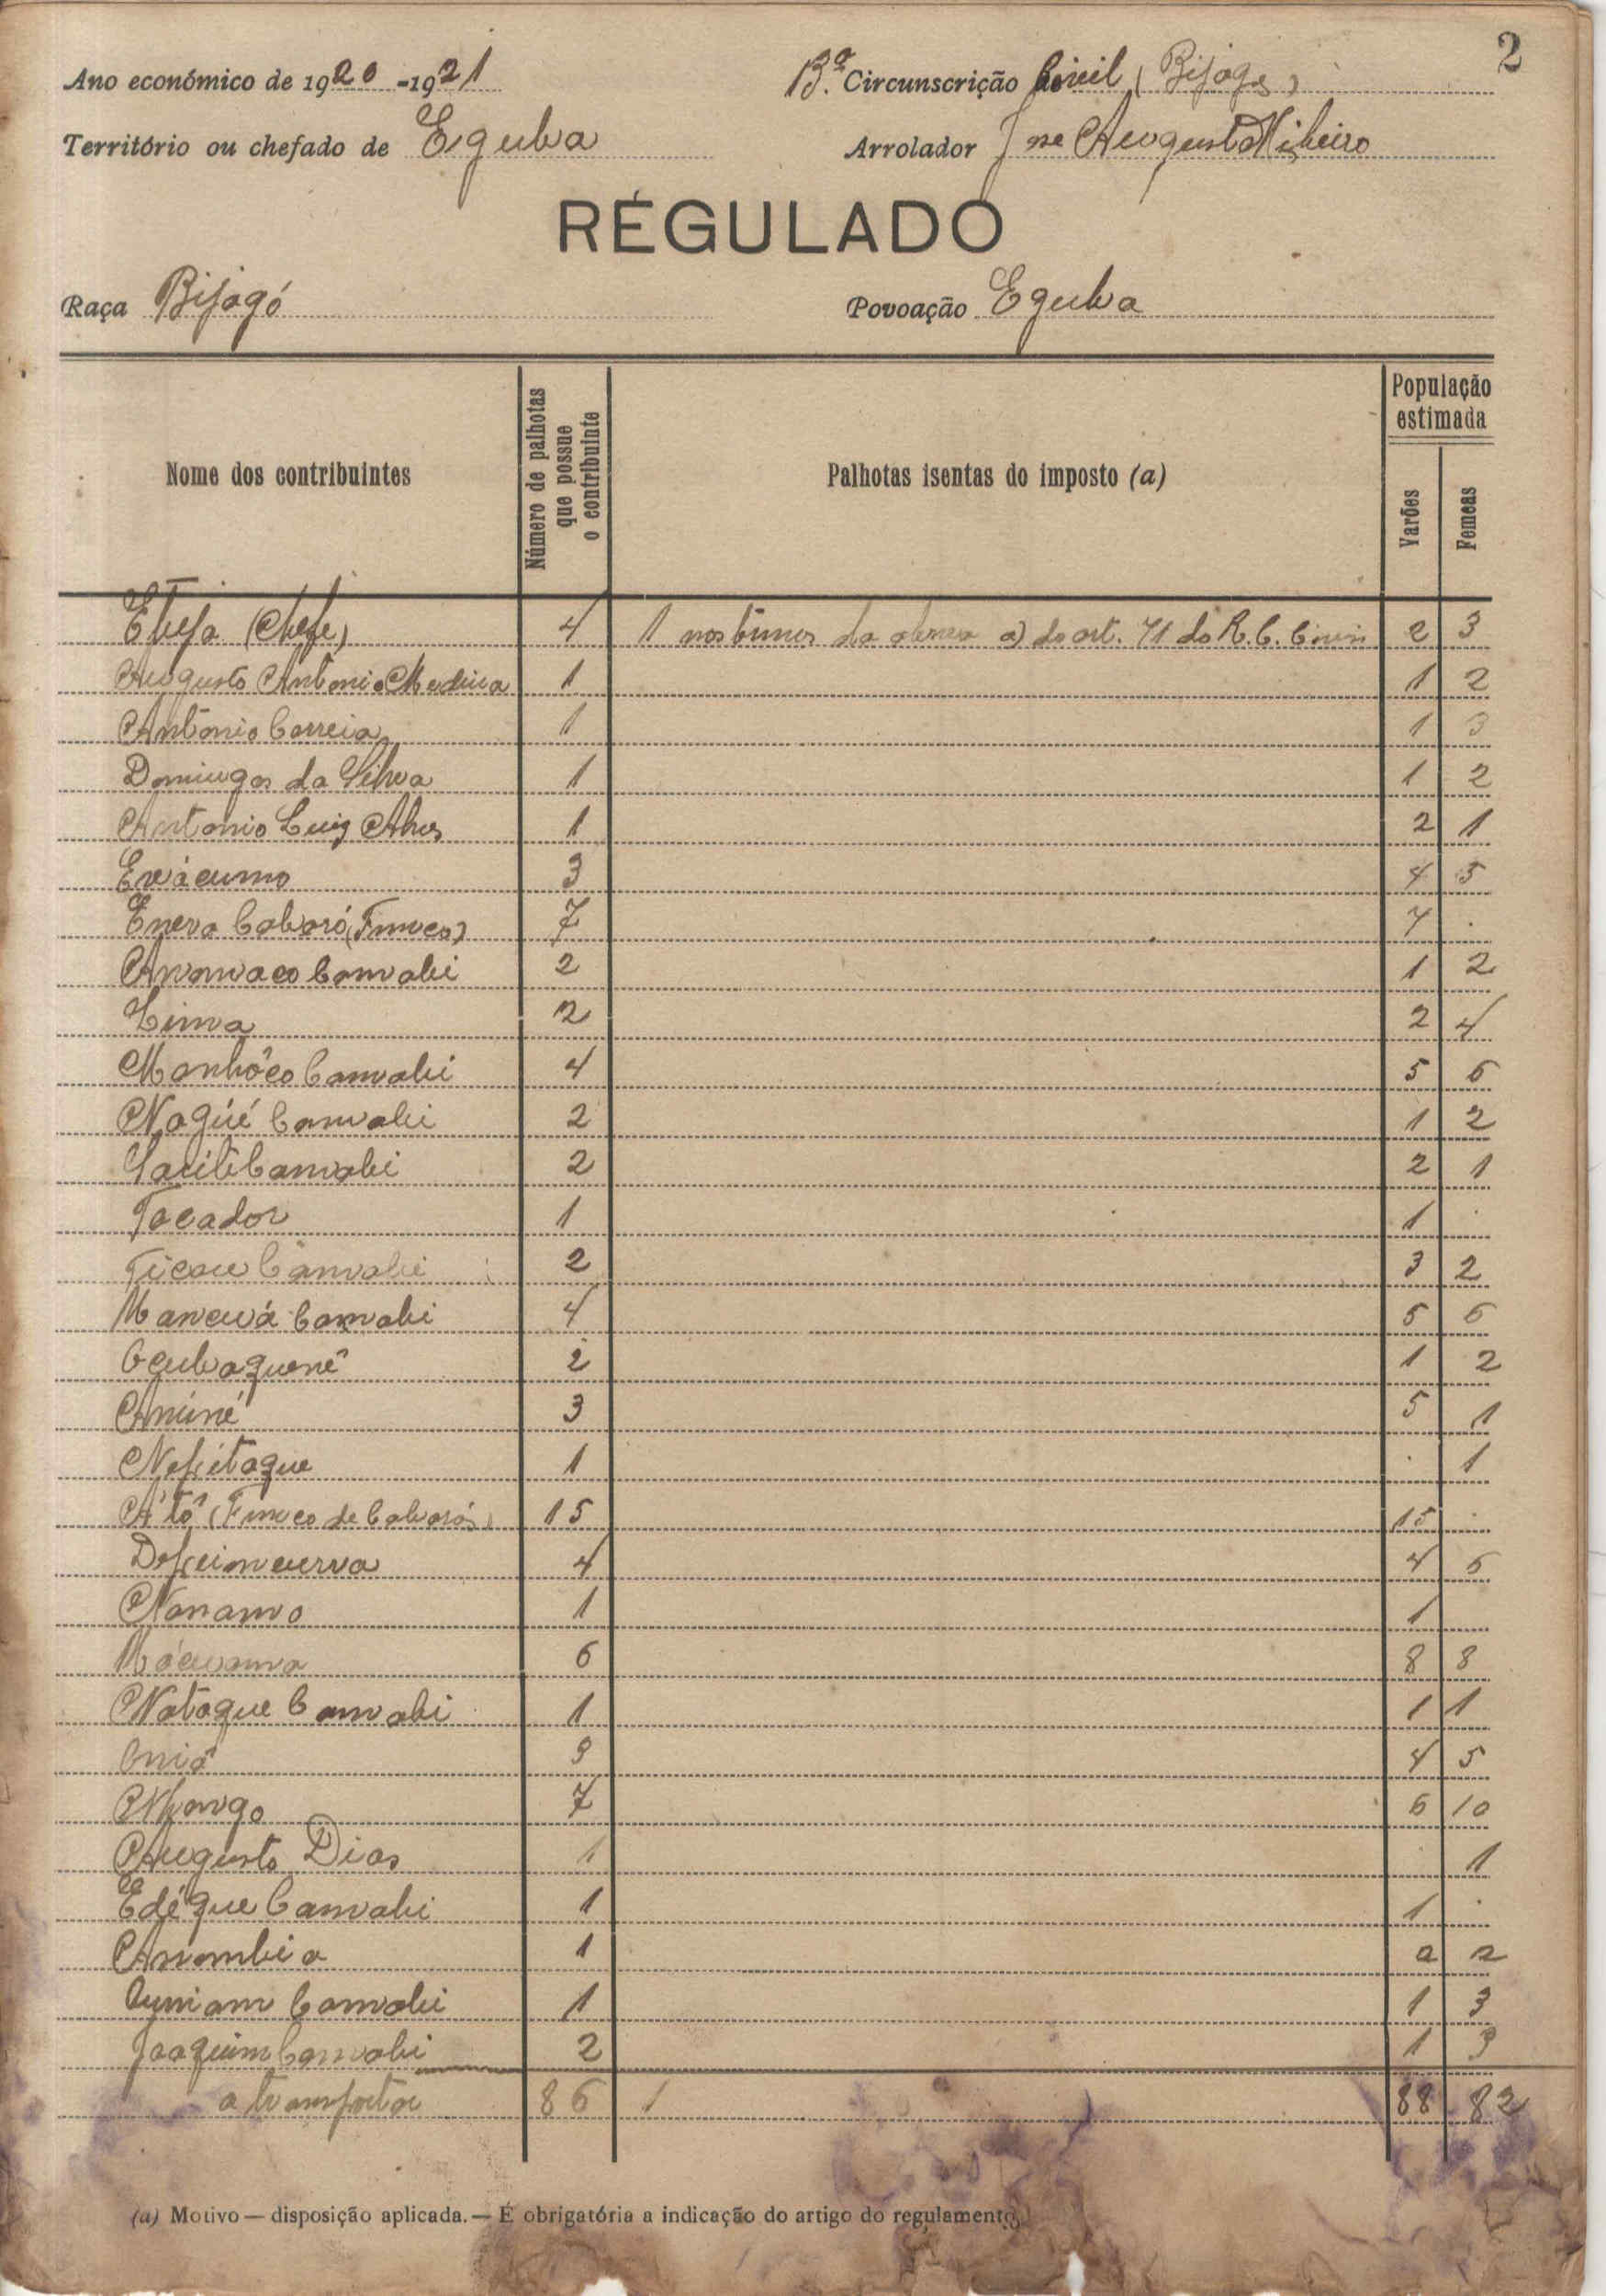 2
Ano económico de 1920-1921
B.ª Circunscrição Civil (Bijagos)
Território ou chefado de Eguba
Arrolador José Augusto Ribeiro
RÉGULADO
Raça Bijagó
Povoação Eguba
Nome dos contribuintes
Número de palhotas que possue o contribuinte
Palhotas isentas do imposto (a)
População estimada
Varões
Femeas
(Chefe) 4 1 nos termos da alinea a) do art. 71 do R. C. 2 3
Augusto Antonio Medina 1 1 2
Antonio Correia 1 1 3
Domingos da Silva 1 1 2
Antonio Luiz Alves 1 2 1
Evácumo 3 4 5
Enera Cabaró (Fanuco) 7 7 .
Canvabi 2 1 2
2 2 4
Manhôco Canvabi 4 5 6
Nagúé Canvabi 2 1 2
Canvabi 2 2 1
Tocador 1 1 .
Canvabi 2 3 2
Mancuá Canvabi 4 5 6
Ocubaquenê 2 1 2
Aniné 3 5 1
1 . 1
Átô (Fanuco de Cabarós) 15 15 .
4 4 6
Nanamo 1 1
6 8 8
Nataque Canvabi 1 1 1
Oniô 3 4 5
7 6 10
Augusto Dias 1 . 1
Edéque Canvabi 1 1 .
Anombia 1 2 2
Canvabi 1 1 3
Joaquim Canvabi 2 1 3
a transportar 86 1 88 82
(a) Motivo — disposição aplicada. — É obrigatória a indicação do artigo do regulamento.